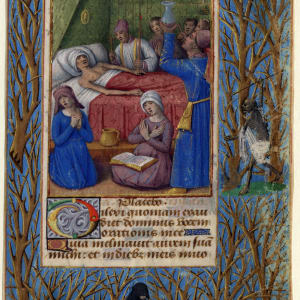 Placebo.
Dilexi quoniam exau
diet dominus vocem
orationis mee
Quia inclinauit aurem suā
michi: et in diebus meis inuo